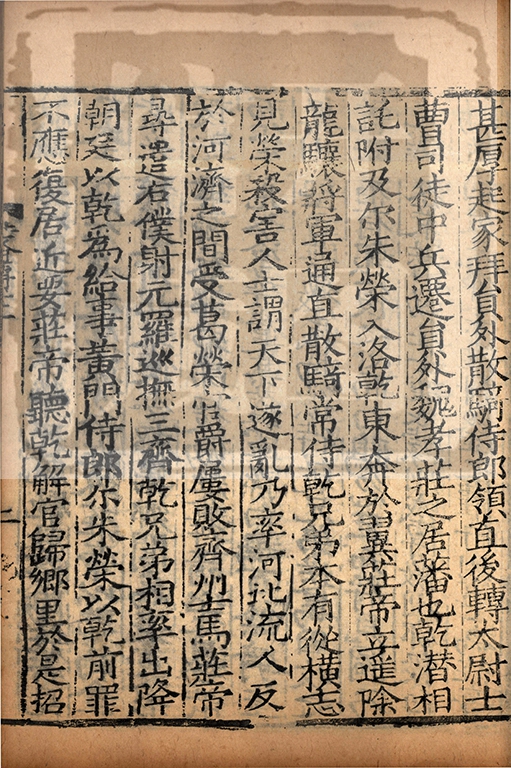 甚厚起家拜員外散騎侍郎領直後轉太尉士
曹司徒中兵遷員外魏孝莊之居藩也乾潛相
託附及尒朱榮入洛乾東奔於翼莊帝立遥除
龍驤將軍通直散騎常侍乾兄弟本有從橫志
見榮殺害人士謂天下遂亂乃率河北流人反
於河濟之間受葛榮官爵屢敗齊州士馬莊帝
尋遣右僕射元羅巡撫三齊乾兄弟相率出降
朝廷以乾為給事黃門侍郎尒朱榮以乾前罪
不應復居近要莊帝聽乾解官歸鄉里於是招
二